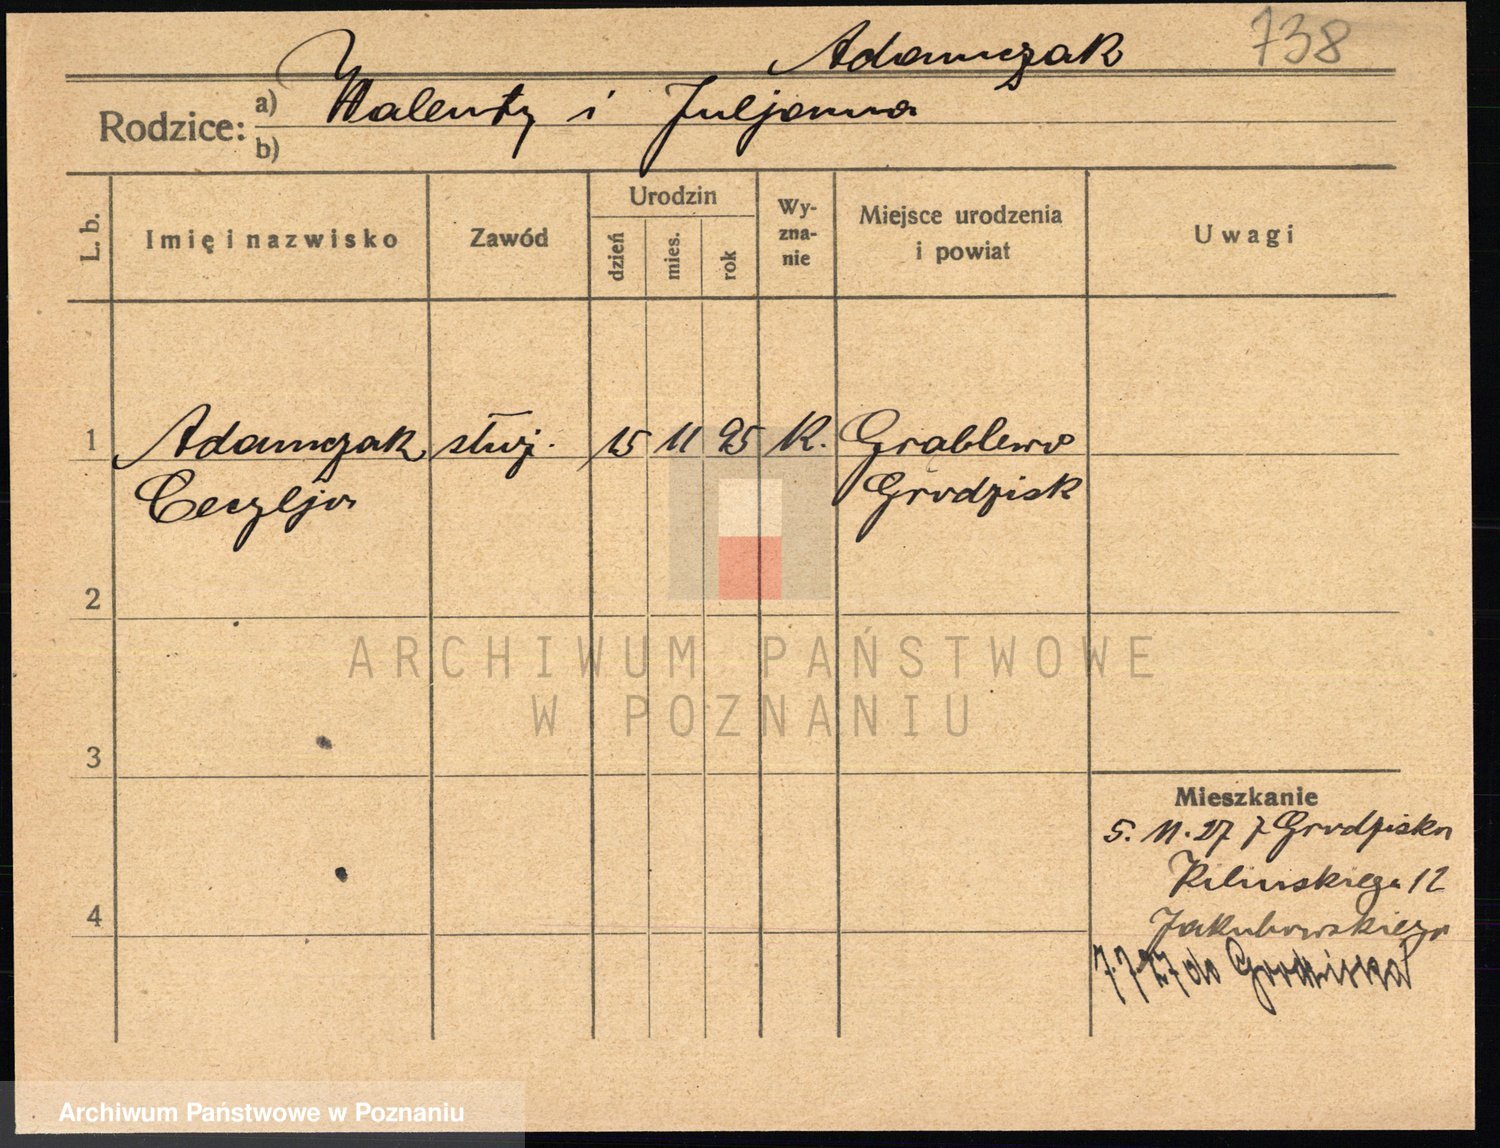 Adamczak 738
Rodzice: a) Walenty i Juljanna
b)
L. b. Imię i nazwisko Zawód Urodzin dzień mies. rok Wy-zna-nie Miejsce urodzenia i powiat Uwagi
1 Adamczak służ. 15 11 95 K. Grablewo
Cecylja Grodzisk
2
ARCHIWUM PAŃSTWOWE
W POZNANIU
3
Mieszkanie
5. 11. 27 z Grodziska
Kilińskiego 12
4 Jakubowskiego
7.7.27 do Grodziska
Archiwum Państwowe w Poznaniu